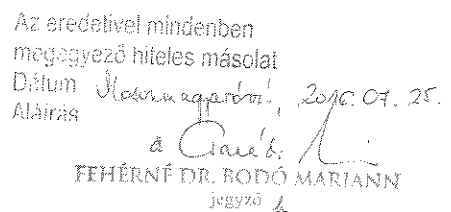 Az eredetivel mindenben
megegyező hiteles másolat
Dátum 2016.07.25.
Aláírás
FEHÉRNÉ DR. BODÓ MARIANN
jegyző